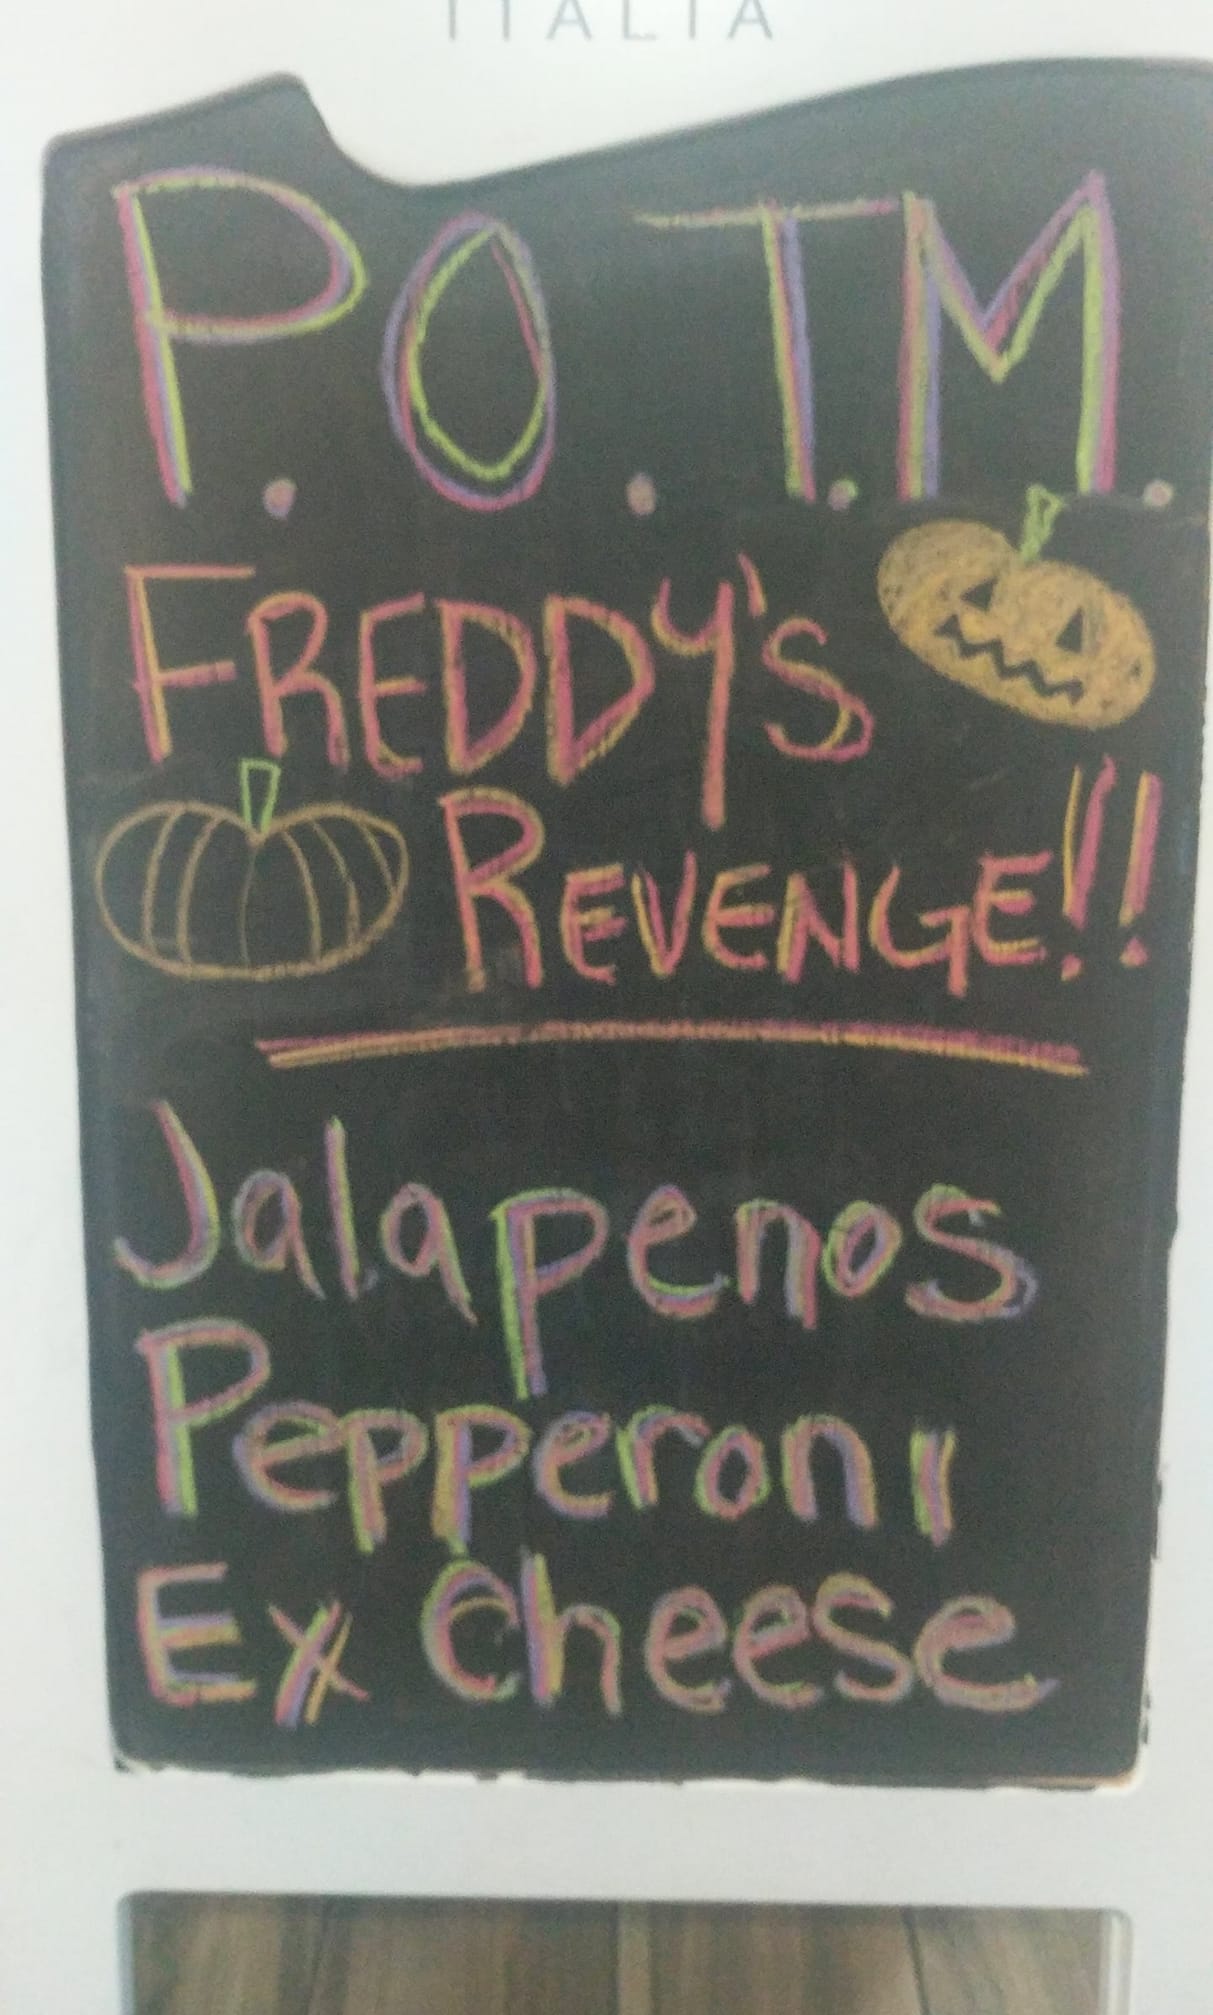 ITALIA
P.O.T.M.
FREDDY'S
REVENGE!!
Jalapenos
Pepperoni
Ex Cheese